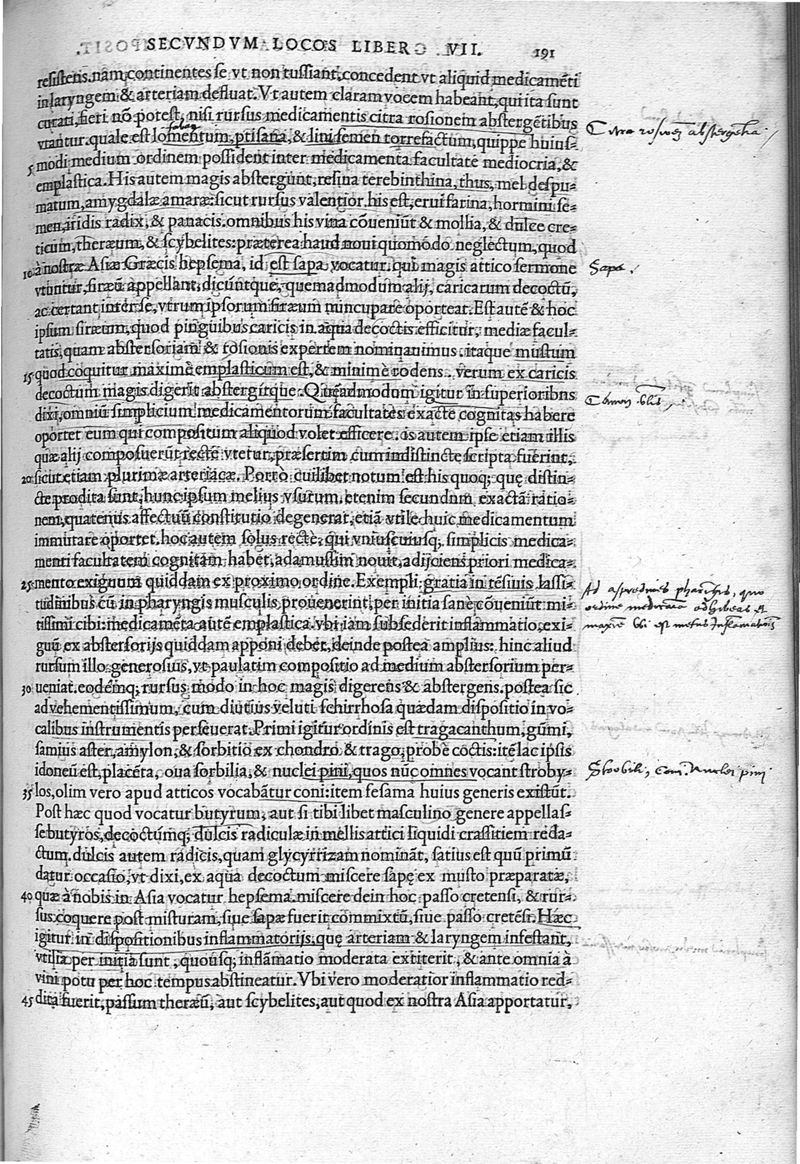 SECVNDVM LOCOS LIBER VII. 191
resistens. nam continentes se vt non tussiant, concedent vt aliquid medicamẽti
in laryngem & arteriam defluat. Vt autem claram vocem habeant, qui ita sunt
curati, fieri nõ potest, nisi rursus medicamentis citra rosionem abstergẽtibus
vtantur. quale est lomentum, ptisana, & lini semen torrefactum, quippe huius=
5 modi medium ordinem possident inter medicamenta facultate mediocria, &
emplastica. His autem magis abstergũt, resina terebinthina, thus, mel despu=
matum, amygdalæ amaræ: sicut rursus valentior, his est, erui farina, hormini se=
men, iridis radix, & panacis. omnibus his vina cõueniũt & mollia, & dulce cre=
ticum, theræum, & scybelites: præterea haud noui quomodo neglectum, quod
10 à nostræ Asiæ Græcis hepsema, id est sapa vocatur. qui magis attico sermone
vtuntur, siræũ appellant, dicũntque, quemadmodum alij, caricarum decoctũ,
ac certant inter se, vtrum ipsorum siræum nuncupare oporteat. Est autẽ & hoc
ipsum siræum, quod pinguibus caricis in aqua decoctis efficitur, mediæ facul=
tatis, quam abstersoriam & rosionis expertem nominauimus. itaque mustum
15 quod coquitur maximè emplasticum est, & minimè rodens. verum ex caricis
decoctum magis digerit abstergitque. Quẽadmodum igitur in superioribns
dixi, omniũ simplicium medicamentorum facultates exactè cognitas habere
oportet eum qui compositum aliquod volet efficere. is autem ipse etiam illis
quæ alij composuerũt rectè vtetur, præsertim cum indistinctè scripta fuerint,
20 sicut etiam plurimæ arteriacæ. Porrò cuilibet notum est his quoq; quę distin=
ctè prodita sunt, hunc ipsum melius vsurum. etenim secundum exactã ratio=
nem, quatenus affectuũ constitutio degenerat, etiã vtile huic medicamentum
immutare oportet. hoc autem solus rectè, qui vniuscuiusq; simplicis medica=
menti facultatem cognitam habet, adamussim nouit, adijciens priori medica=
25 mento exiguum quiddam ex proximo ordine. Exempli gratia in tẽsiuis lassi=
tudinibus cũ in pharyngis musculis prouenerint, per initia sanè cõueniũt mi=
tissimi cibi: medicamẽta autẽ emplastica. vbi iam subsederit inflammatio, exi=
guũ ex abstersorijs quiddam apponi debet, deinde postea amplius: hinc aliud
rursum illo generosius, vt paulatim compositio ad medium abstersorium per=
30 ueniat. eodẽmq; rursus modo in hoc magis digerens & abstergens. postea sic
ad vehementissimum, cum diutius veluti schirrhosa quædam dispositio in vo=
calibus instrumentis perseuerat. Primi igitur ordinis est tragacanthum, gũmi,
samius aster, amylon, & sorbitio ex chondro & trago, probè coctis: itẽ lac ipsis
idoneũ est, placẽta, oua sorbilia, & nuclei pini, quos nũc omnes vocant stroby=
35 los, olim vero apud atticos vocabãtur coni: item sesama huius generis existũt.
Post hæc quod vocatur butyrum, aut si tibi libet masculino genere appellas=
se butyros, decoctumq; dulcis radiculæ in mellis attici liquidi crassitiem reda=
ctum. dulcis autem radicis, quam glycyrrizam nominãt, satius est quũ primũ
datur occasio, vt dixi, ex aqua decoctum miscere sapę ex musto præparatæ,
40 quæ à nobis in Asia vocatur hepsema. miscere dein hoc passo cretensi, & rur=
sus coquere post misturam, siue sapæ fuerit commixtũ, siue passo cretẽsi. Hæc
igitur in dispositionibus inflammatorijs, quę arteriam & laryngem infestant,
vtilia per initia sunt, quousq; inflãmatio moderata extiterit, & ante omnia à
vini potu per hoc tempus abstineatur. Vbi vero moderatior inflammatio red=
45 dita fuerit, passum theræũ, aut scybelites, aut quod ex nostra Asia apportatur,
Citra rosionẽ abstergentia.
Sapa.
ordine medicam
Strobili, Coni, Nuclei pini